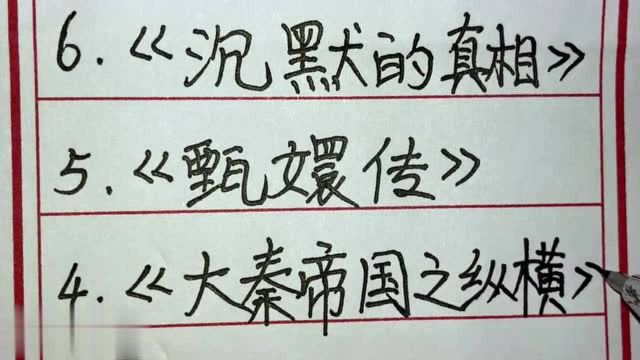 6.《沉默的真相》
5.《甄嬛传》
4.《大秦帝国之纵横》